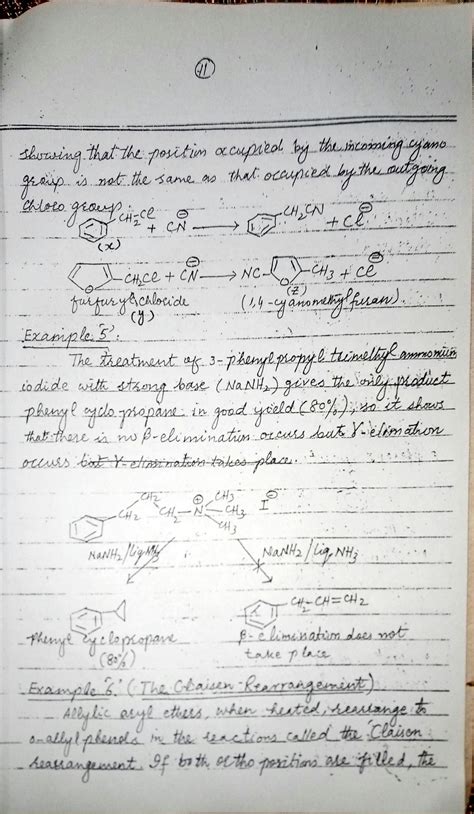 11
showing that the position occupied by the incoming cyano
group is not the same as that occupied by the outgoing
chloro group.
CH2-Cl + CN⊖ → CH2CN + Cl⊖
(x)
CH2Cl + CN⊖ → NC- -CH3 + Cl⊖
O O
furfuryl chloride (z)
(y) (1,4-cyanomethyl furan).
Example '5':
The treatment of 3-phenyl propyl trimethyl ammonium
iodide with strong base (NaNH2) gives the only product
phenyl cyclo propane in good yield (80%), so it shows
that there is no β-elimination occurs but γ-elimation
occurs but γ-elimination takes place.
CH2 CH3
CH2 CH2-N⊕-CH3 I⊖
CH3
NaNH2/liq NH3 NaNH2/liq. NH3
+ x CH2-CH=CH2
Phenyl cyclopropane β-elimination does not
(80%) take place
Example '6' (The Claisen Rearrangement)
Allylic aryl ethers, when heated, rearrange to
o-allyl phenols in the reactions called the Claisen
rearrangement. If both ortho positions are filled, the